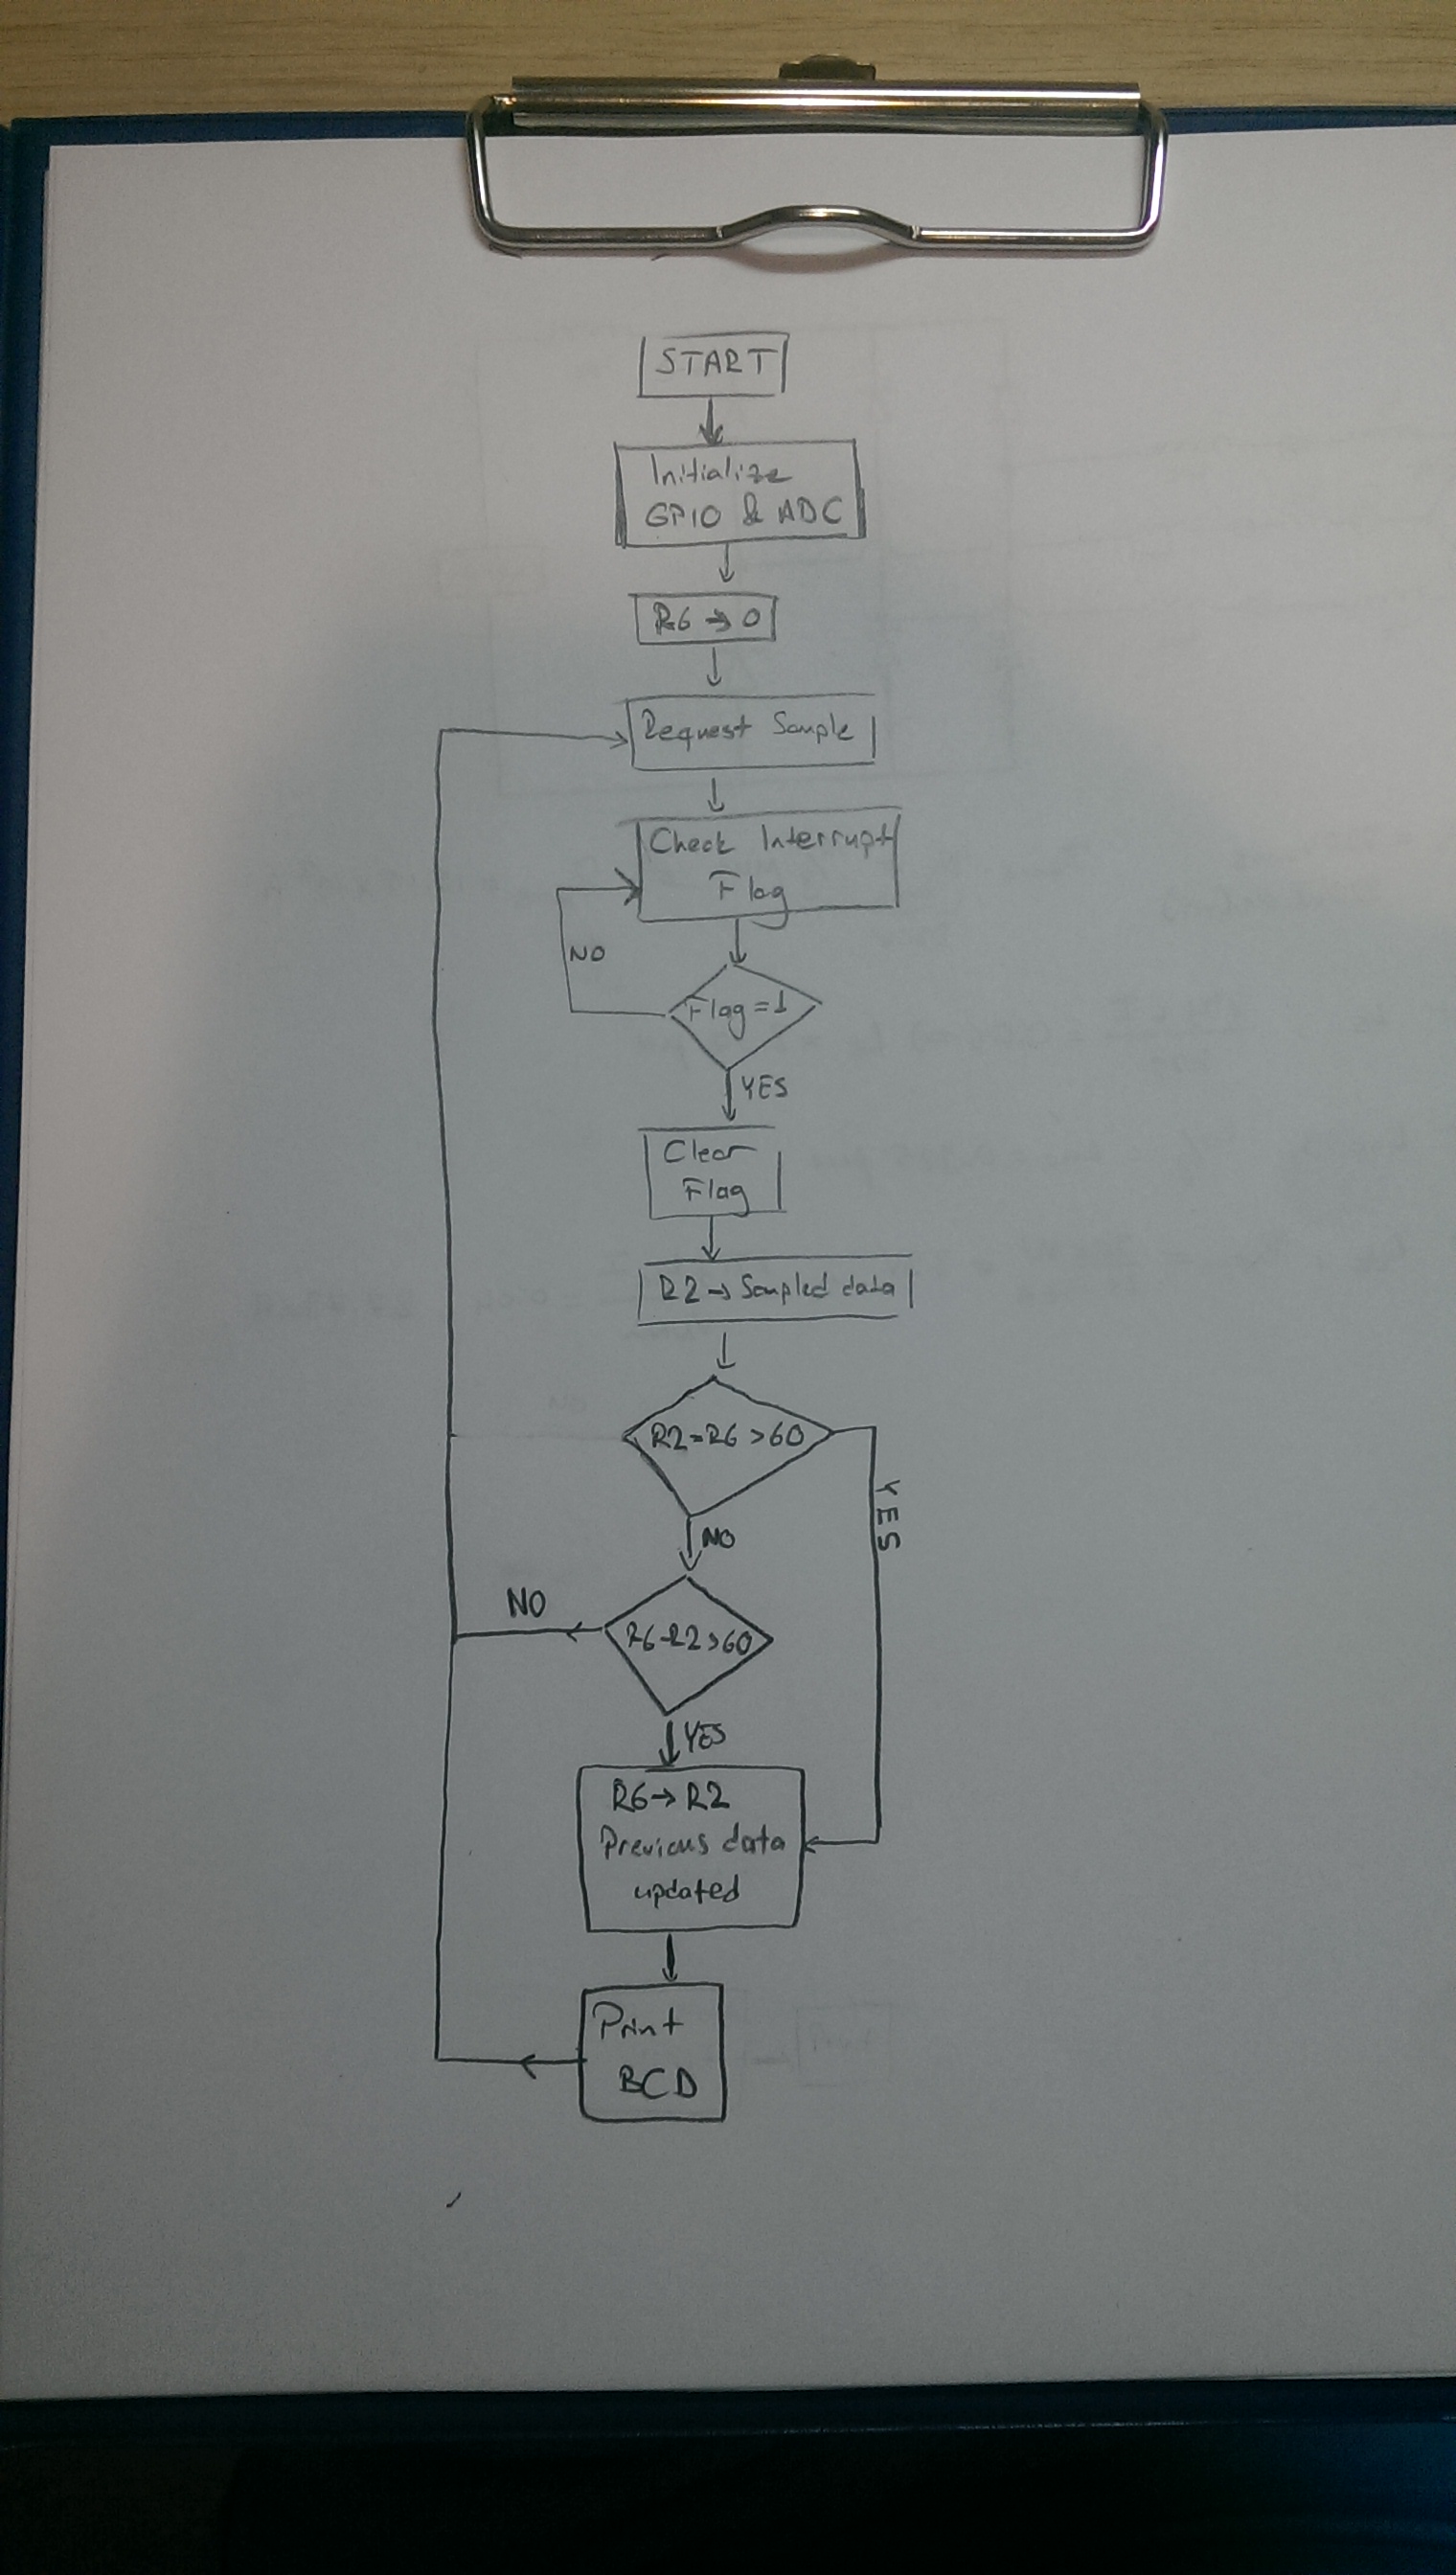 START
Initialize
GPIO & ADC
R6 → 0
Request Sample
Check Interrupt
Flag
NO
Flag=1
YES
Clear
Flag
R2 → Sampled data
R2-R6 >60
YES
NO
NO
R6-R2>60
YES
R6 → R2
Previous data
updated
Print
BCD